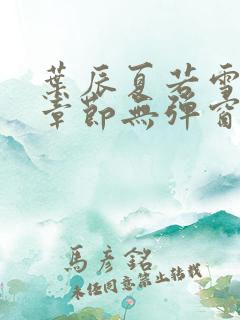 葉辰夏若雪
章節無彈窗
馬彥銘
未經同意禁止轉載